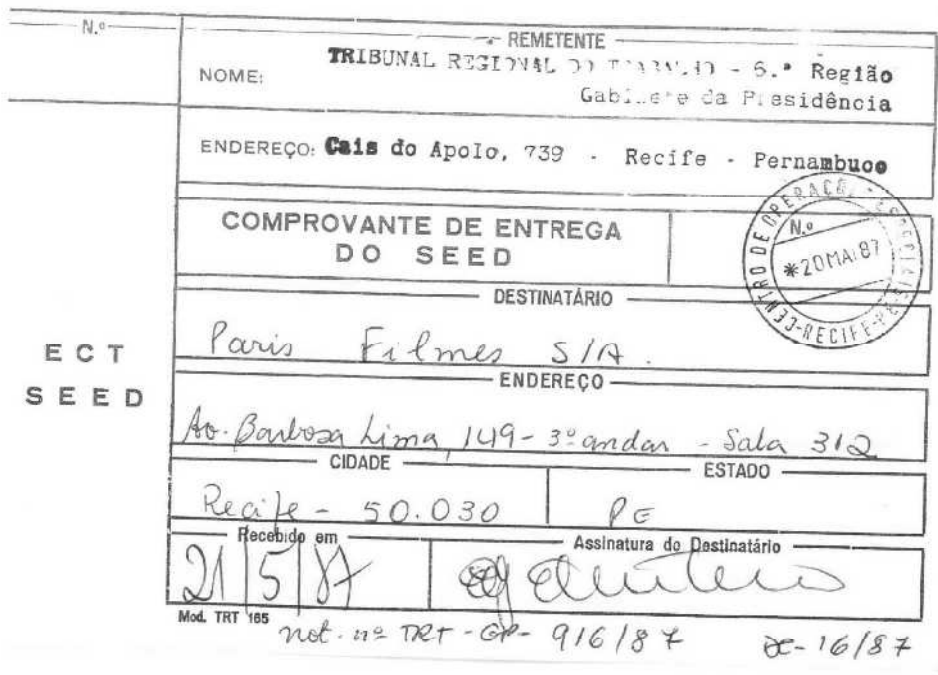 N.º
REMETENTE
NOME: TRIBUNAL REGIONAL DO TRABALHO - 6.ª Região
Gabinete da Presidência
ENDEREÇO: Cais do Apolo, 739 - Recife - Pernambuco
COMPROVANTE DE ENTREGA
DO SEED
N.º
CENTRO DE OPERAÇÕES ESPECIAIS
*20 MAI 87
RECIFE-PE
DESTINATÁRIO
Paris Filmes S/A.
ECT
SEED
ENDEREÇO
Av. Barbosa Lima, 149 - 3º andar - Sala 312
CIDADE
ESTADO
Recife - 50.030
PE
Recebido em
Assinatura do Destinatário
21/5/87
Mod. TRT 165
not. nº TRT - GP - 916/87
DC-16/87